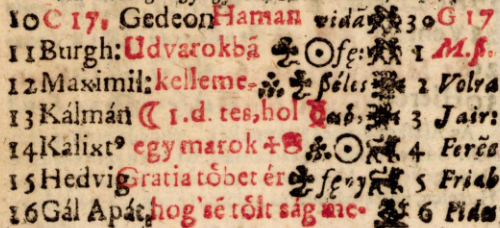 10 C 17. Gedeon Haman vidã 30 G 17
11 Burgh: Udvarokbã ☉ fę: 1 M.ß.
12 Maximil: kelleme- ßéles 2 Volra
13 Kálmán ☾ 1.d. tes, hol 3 Jair:
14 Kalixt⁹ egy marok ☉ 4 Ferẽs
15 Hedvig Gratia tỏbet ér fęny 5 Friab
16 Gál Apát, hog' sẽ tỏlt ság me- 6 Fides